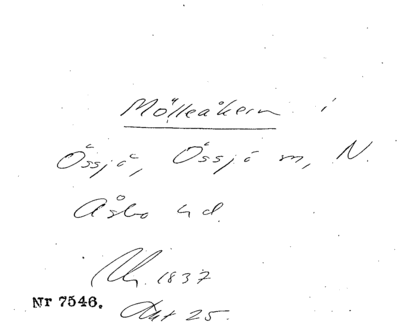 Mölleåkern i
Össjö, Össjö sn, N.
Åsbo hd.
Uh. 1837
Nr 7546.
Akt 25.